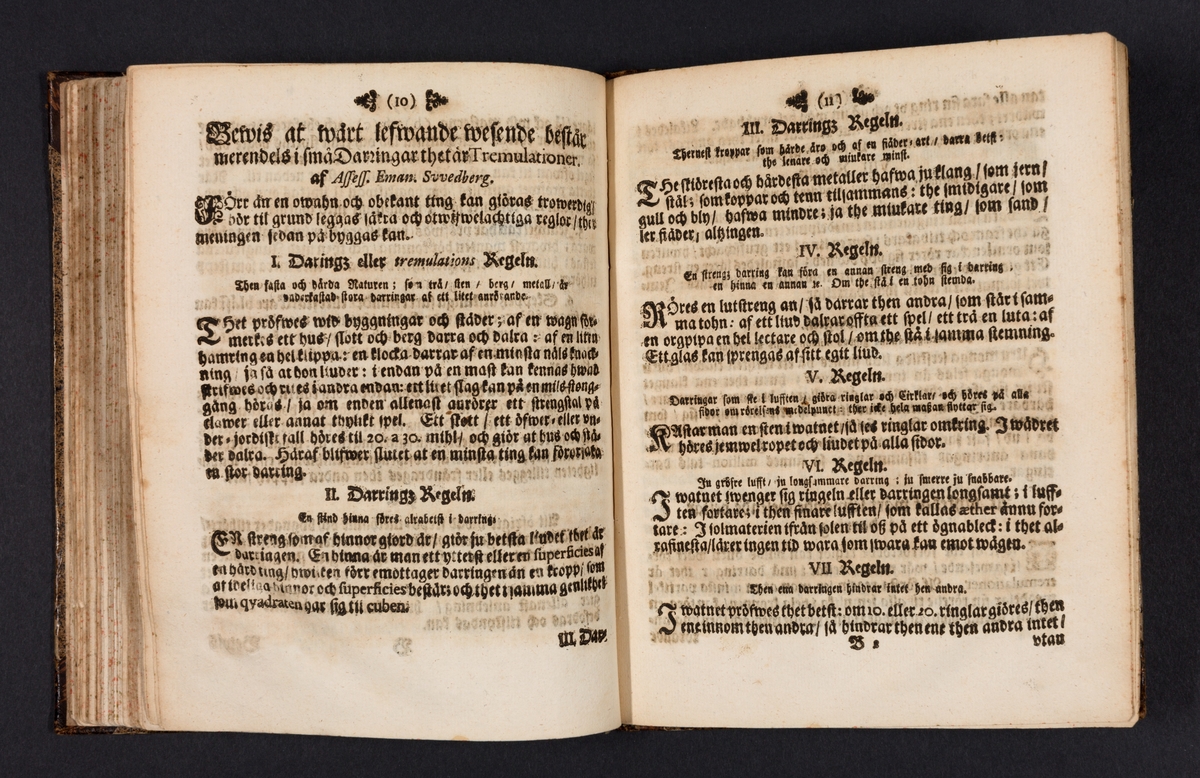 (10)
Bewis at wårt lefwande wesende består
merendels i små Darringar thet är Tremulationer.
af Assess. Eman. Svvedberg.
FÖrr än en owahn och obekant ting kan giöras trowerdig/
bör til grund leggas säkra och otwifwelachtiga reglor/ ther
meningen sedan på byggas kan.
I. Daringz eller tremulations Regeln.
Then fasta och hårda Naturen; som trä/ sten/ berg/ metall/ är
vaderkastad stora darringar af ett litet anrörande.
THet pröfwes wid byggningar och städer; af en wagn för-
merkes ett hus/ slott och berg darra och dalra: af en liten
hamring en hel klippa: en klocka darrar af en minsta nåls knack-
ning/ ja så at hon liuder: i endan på en mast kan kennas hwad
skrifwes och rites i andra endan: ett litet slag kan på en mils stong-
gång höras/ ja om enden allenast anrörer ett strengstal på
clawer eller annat thylikt spel. Ett skott/ ett öfwer- eller un-
der-jordiskt fall höres til 20. a 30. mihl/ och giör at hus och stä-
der dalra. Häraf blifwer slutet at en minsta ting kan förorsaka
en stor darring.
II. Darringz Regeln.
En stind hinna föres alrabetst i darring.
EN streng som af hinnor giord är/ giör ju betsta liudet thet är
darringen. En hinna är man ett ytterst eller en superficies af
en hård ting/ hwilken förr emottager darringen än en kropp/ som
af idelliga hinnor och superficies består; och thet i samma genlikhet
som qvadraten har sig til cuben.
III. Dar-
(11)
III. Darringz Regeln.
Thernest kroppar som hårde äro och af en fiäder-art/ darra betst;
the lenare och miukare minst.
THe skiöresta och hårdesta metaller hafwa ju klang/ som jern/
stål; som koppar och tenn tilsammans: the smidigare/ som
gull och bly/ hafwa mindre; ja the miukare ting/ som sand/
ler fiäder/ alzingen.
IV. Regeln.
En strengz darring kan föra en annan streng med sig i darring,
en hinna en annan ꝛc. Om the stå i en tohn stemda.
RÖres en lutstreng an/ så darrar then andra/ som står i sam-
ma tohn: af ett liud dalrar offta ett spel/ ett trä en luta: af
en orgpipa en hel lectare och stol/ om the stå i samma stemning.
Ett glas kan sprengas af sitt egit liud.
V. Regeln.
Darringar som ske i lufften/ giöra ringlar och Cirklar/ och höres på alla
sidor om rörelsens medelpunct; ther icke hela massan flyttar sig.
KAstar man en sten i watnet/ så ses ringlar omkring. I wädret
höres jemwel ropet och liudet på alla sidor.
VI. Regeln.
Ju gröfre lufft/ ju longsammare darring; ju smerre ju snabbare.
I watnet swenger sig ringeln eller darringen longsamt; i luff-
ten fortare; i then finare lufften/ som kallas æther ännu for-
tare: I solmaterien ifrån solen til oß på ett ögnableck: i thet al-
rafinesta/ lärer ingen tid wara som swara kan emot wägen.
VII Regeln.
Then ena darringen hindrar intet hen andra.
I watnet pröfwes thet betst: om 10. eller 20. ringlar giöres/ then
ene innom then andra/ så hindrar then ene then andra intet/
B 2
utan